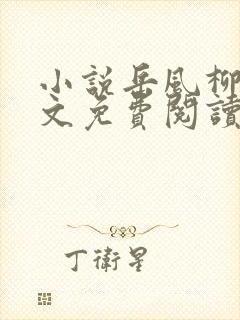 小說岳風柳
文免費閱讀
丁衛星